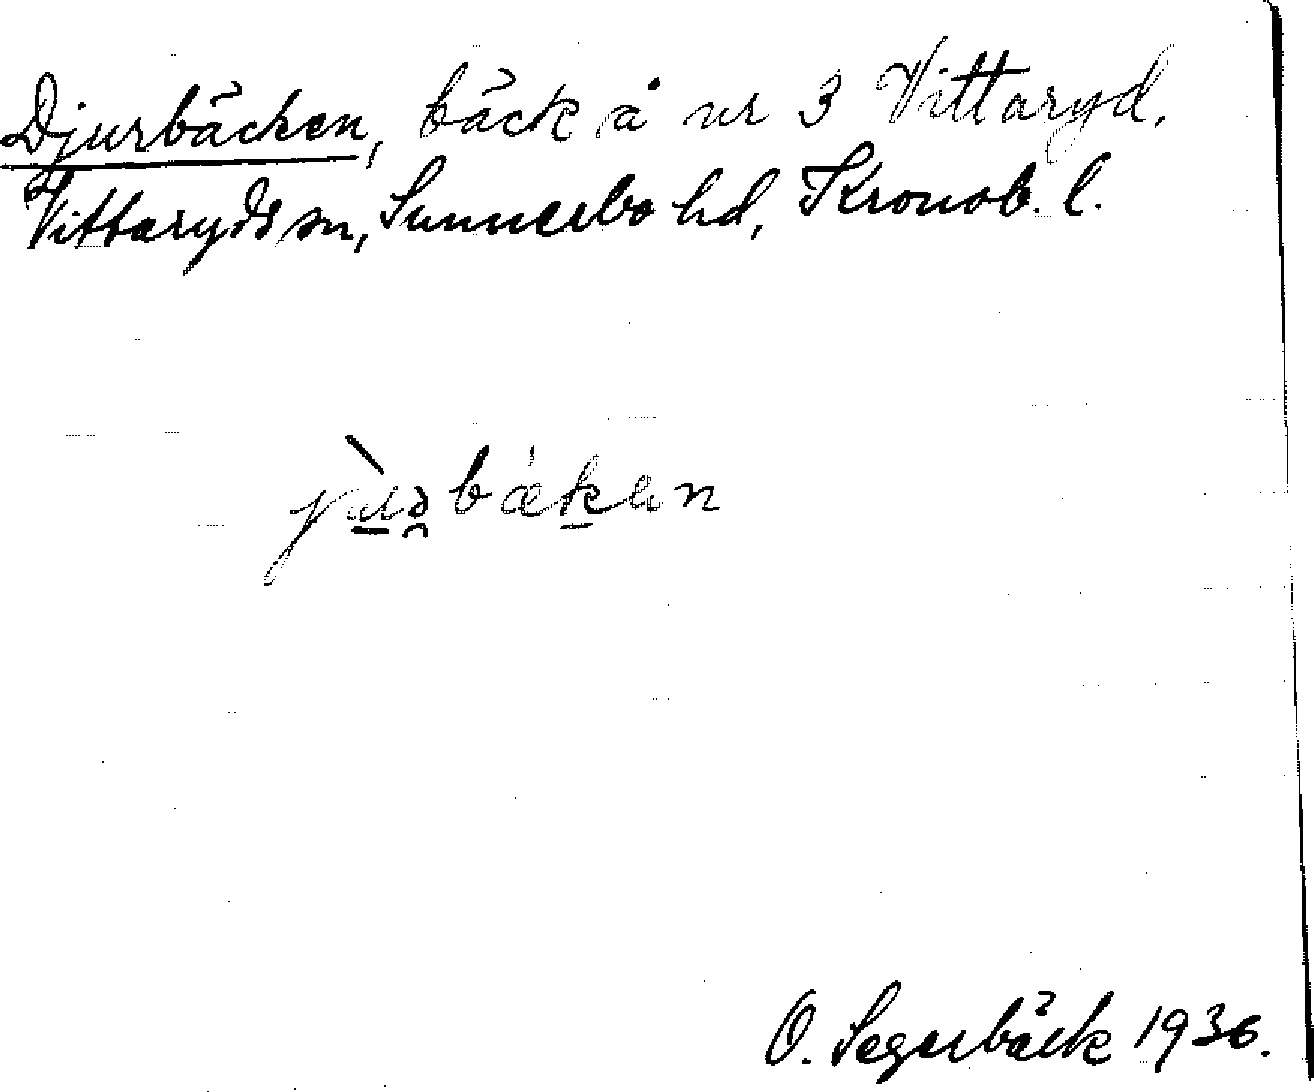 Djurbäcken, bäck å nr 3 Vittaryd,
Vittaryds sn, Sunnerbo hd, Kronob. l.
O. Segerbäck 1936.